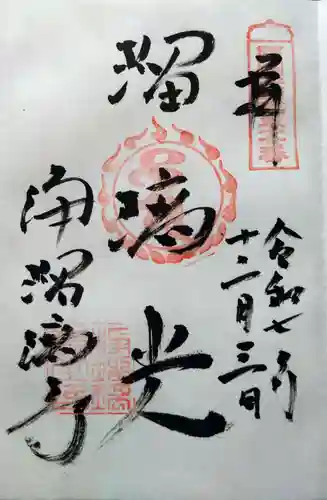 奉拝
令和七年
十二月三日
瑠璃光
浄瑠璃寺